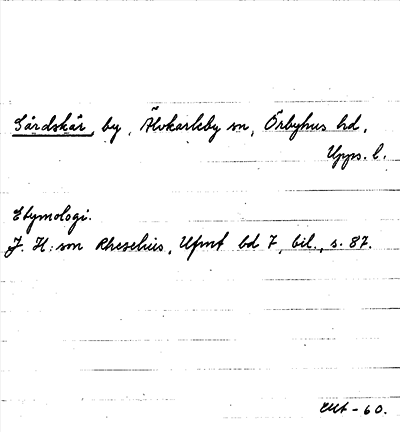 Gårdskär, by, Älvkarleby sn, Örbyhus hd,
Upps. l.
Etymologi.
J. H:son Rhezelius, Upmt bd 7, bil., s. 87.
-60.